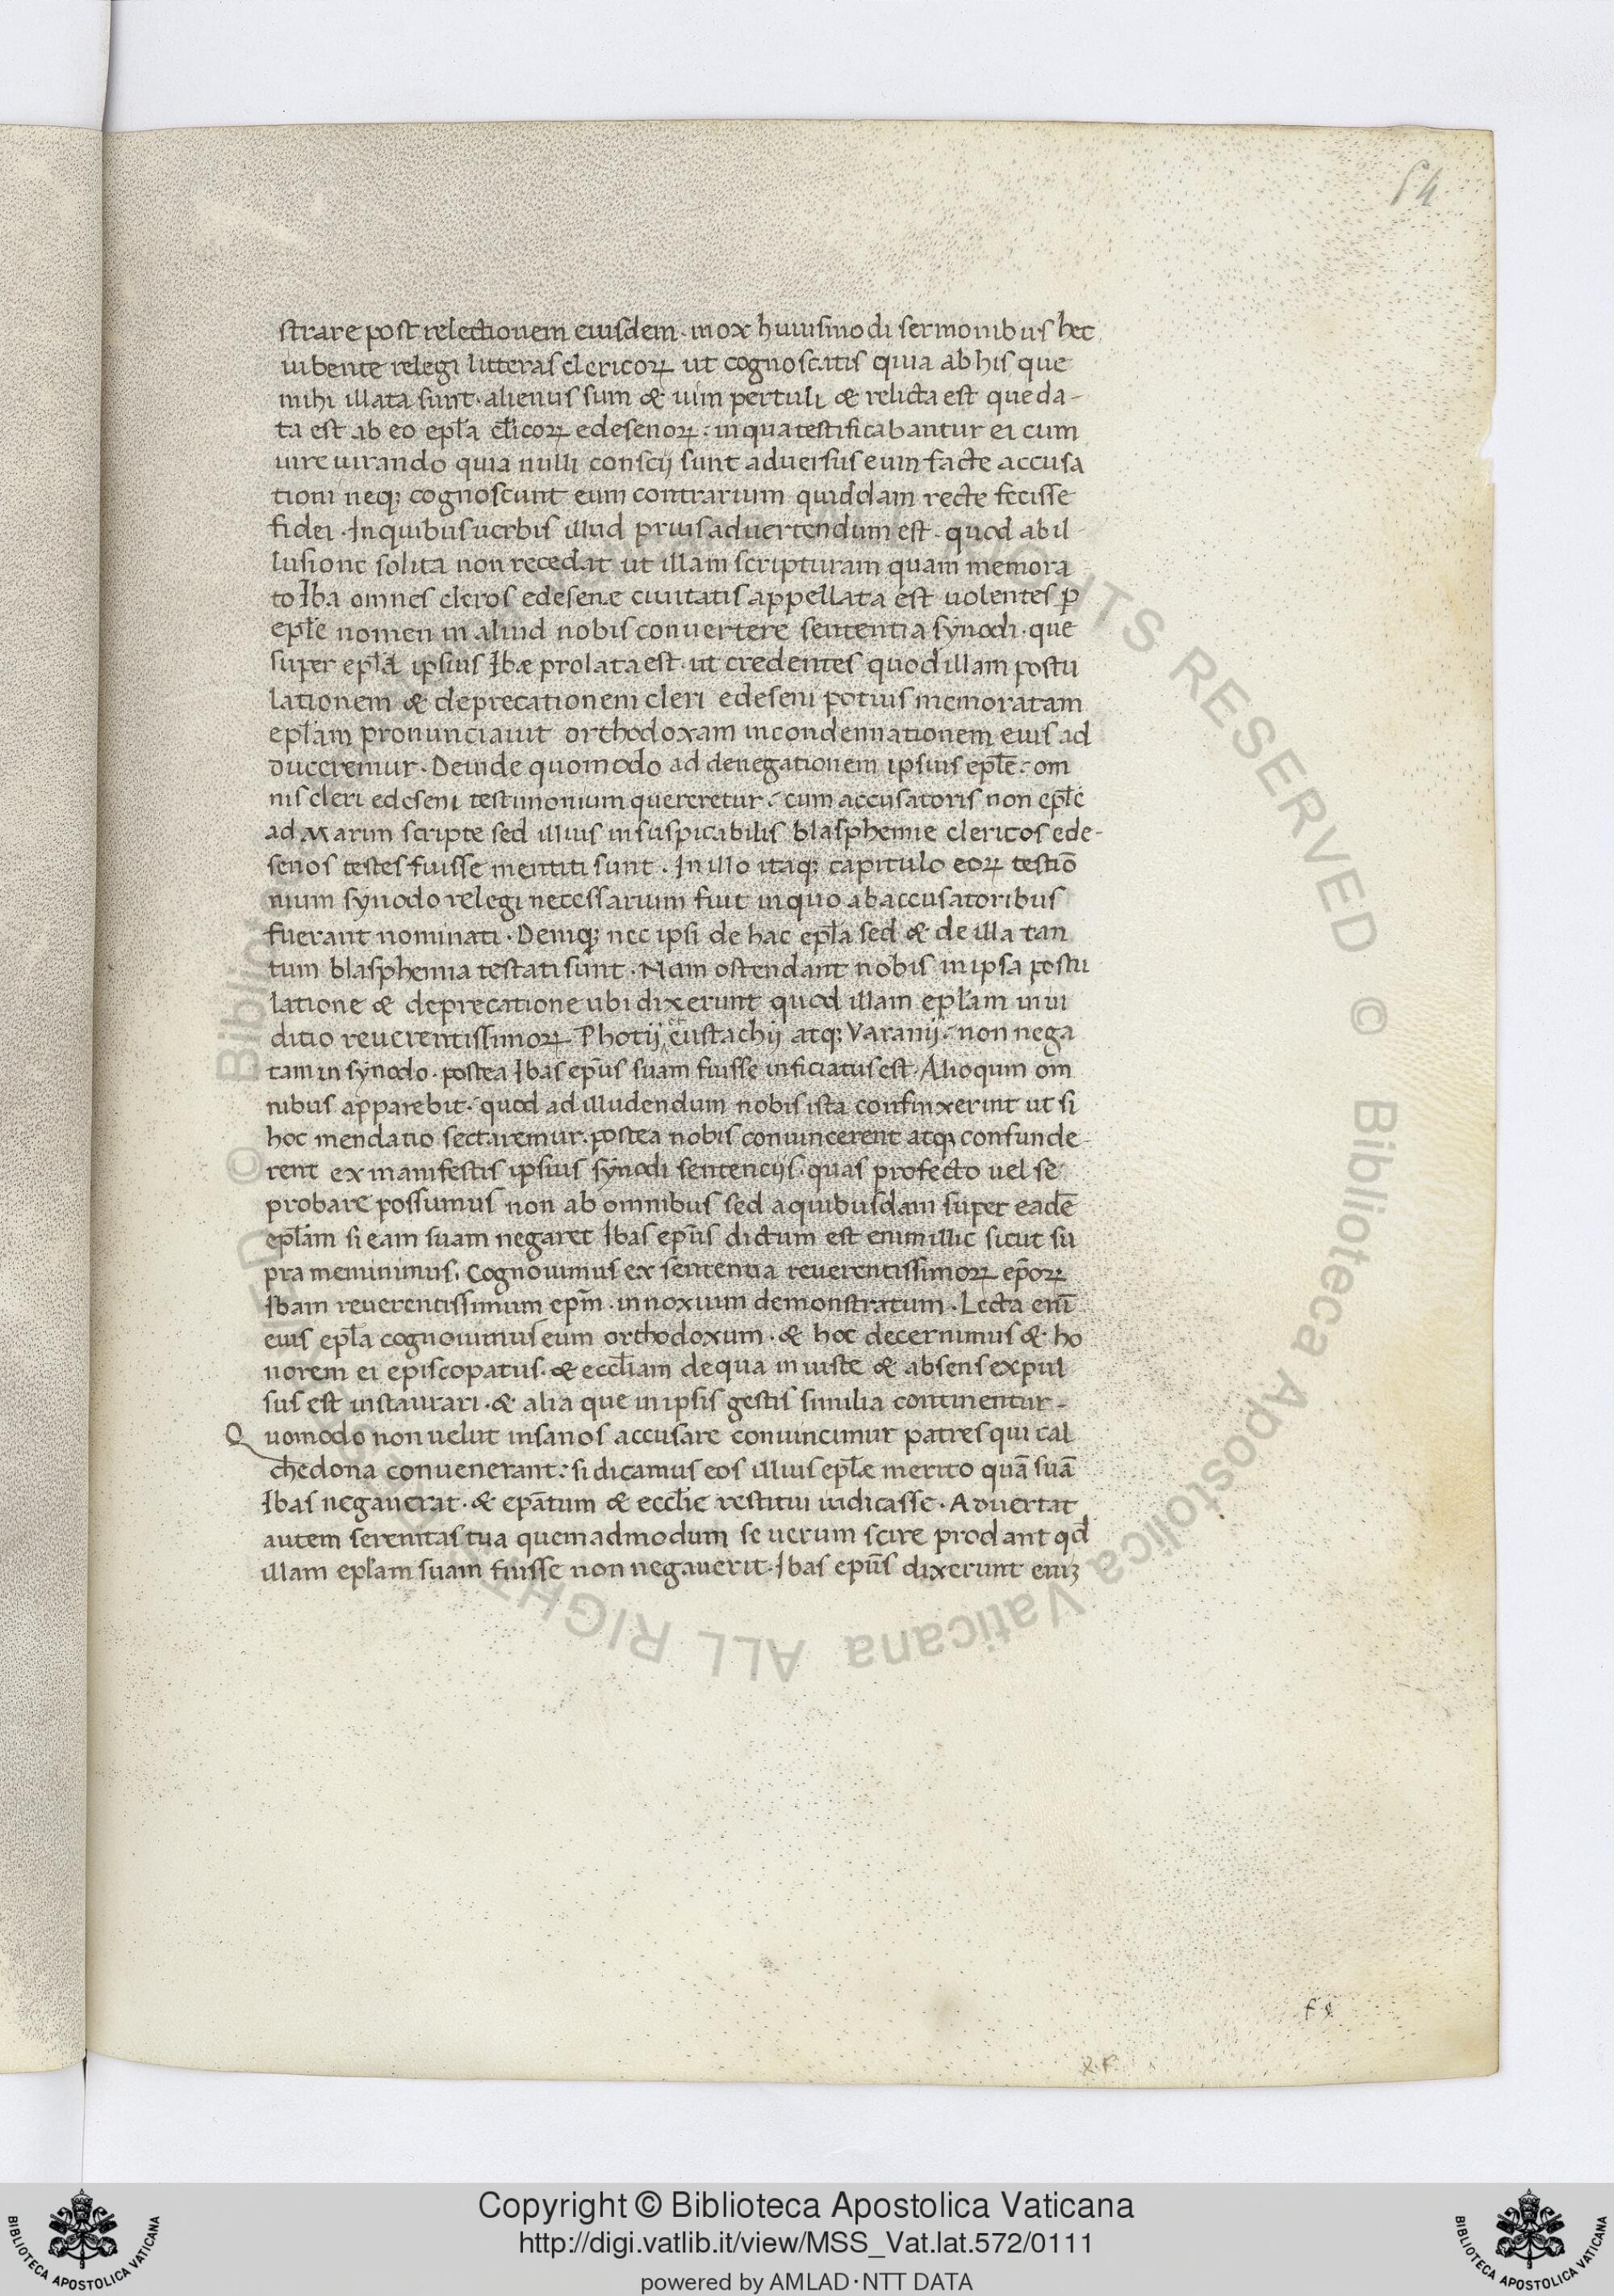 54
strare post relectionem eiusdem · mox huiusmodi sermonibus hec
iubente relegi litteras clericoꝝ ut cognoscatis quia ab his que
mihi illata sunt · alienus sum & uim pertuli & relicta est que da-
ta est ab eo epl̄a cl̄icoꝝ edesenoꝝ : in qua testificabantur ei cum
iureiurando quia nulli conscij sunt aduersus eum facte accusa
tioni neqꝫ cognoscunt eum contrarium quiddam recte fecisse
fidei · In quibus uerbis illud prius aduertendum est · quod ab il-
lusione solita non recedat ut illam scripturam quam memora
to Iba omnes cleros edesene ciuitatis appellata est uolentes ꝑ
epl̄e nomen in aliud nobis conuertere sententia synodi · que
super epl̄a ipsius Ibæ prolata est · ut credentes quod illam postu
lationem & deprecationem cleri edeseni potius memoratam
epl̄am pronunciauit orthodoxam in condemnationem eius ad
duceremur · Deinde quomodo ad denegationem ipsius epl̄e : om
nis cleri edeseni testimonium quereretur : cum accusatoris non epl̄e
ad Marim scripte sed illius insuspicabilis blasphemie clericos ede-
senos testes fuisse mentiti sunt · In illo itaqꝫ capitulo eoꝝ testiō
nium synodo relegi necessarium fuit in quo ab accusatoribus
fuerant nominati · Deniqꝫ nec ipsi de hac epl̄a sed & de illa tan
tum blasphemia testati sunt · Nam ostendant nobis in ipsa postu
latione & deprecatione ubi dixerunt quod illam epl̄am in iu
ditio reuerentissimoꝝ Photij eustachij atqꝫ Varanij : non nega
tam in synodo · postea Ibas ep̄us suam fuisse inficiatus est · Alioquin om
nibus apparebit : quod ad illudendum nobis ista confinxerint ut si
hoc mendatio sectaremur · postea nobis conuincerent atqꝫ confunde
rent ex manifestis ipsius synodi sentencijs · quas profecto uel se
probare possumus non ab omnibus sed a quibusdam super eadē
epl̄am si eam suam negaret Ibas ep̄us dictum est enim illic sicut su
pra meminimus · Cognouimus ex sententia reuerentissimoꝝ ep̄oꝝ
Ibam reuerentissimum ep̄m · innoxium demonstratum · Lecta enī
eius epl̄a cognouimus eum orthodoxum · & hoc decernimus & ho
norem ei episcopatus · & eccl̄iam de qua iniuste & absens expul
sus est instaurari · & alia que in ipsis gestis similia continentur -
Quomodo non uelut insanos accusare conuincimur patres qui cal
chedona conuenerant : si dicamus eos illius epl̄e merito quā suā
Ibas negauerat · & ep̄atum & eccl̄ie restitui iudicasse · Aduertat
autem serenitas tua quemadmodum se uerum scire prodant qd̄
illam epl̄am suam fuisse non negauerit · Ibas ep̄us dixerunt eniꝫ
Copyright © Biblioteca Apostolica Vaticana
http://digi.vatlib.it/view/MSS_Vat.lat.572/0111
powered by AMLAD·NTT DATA